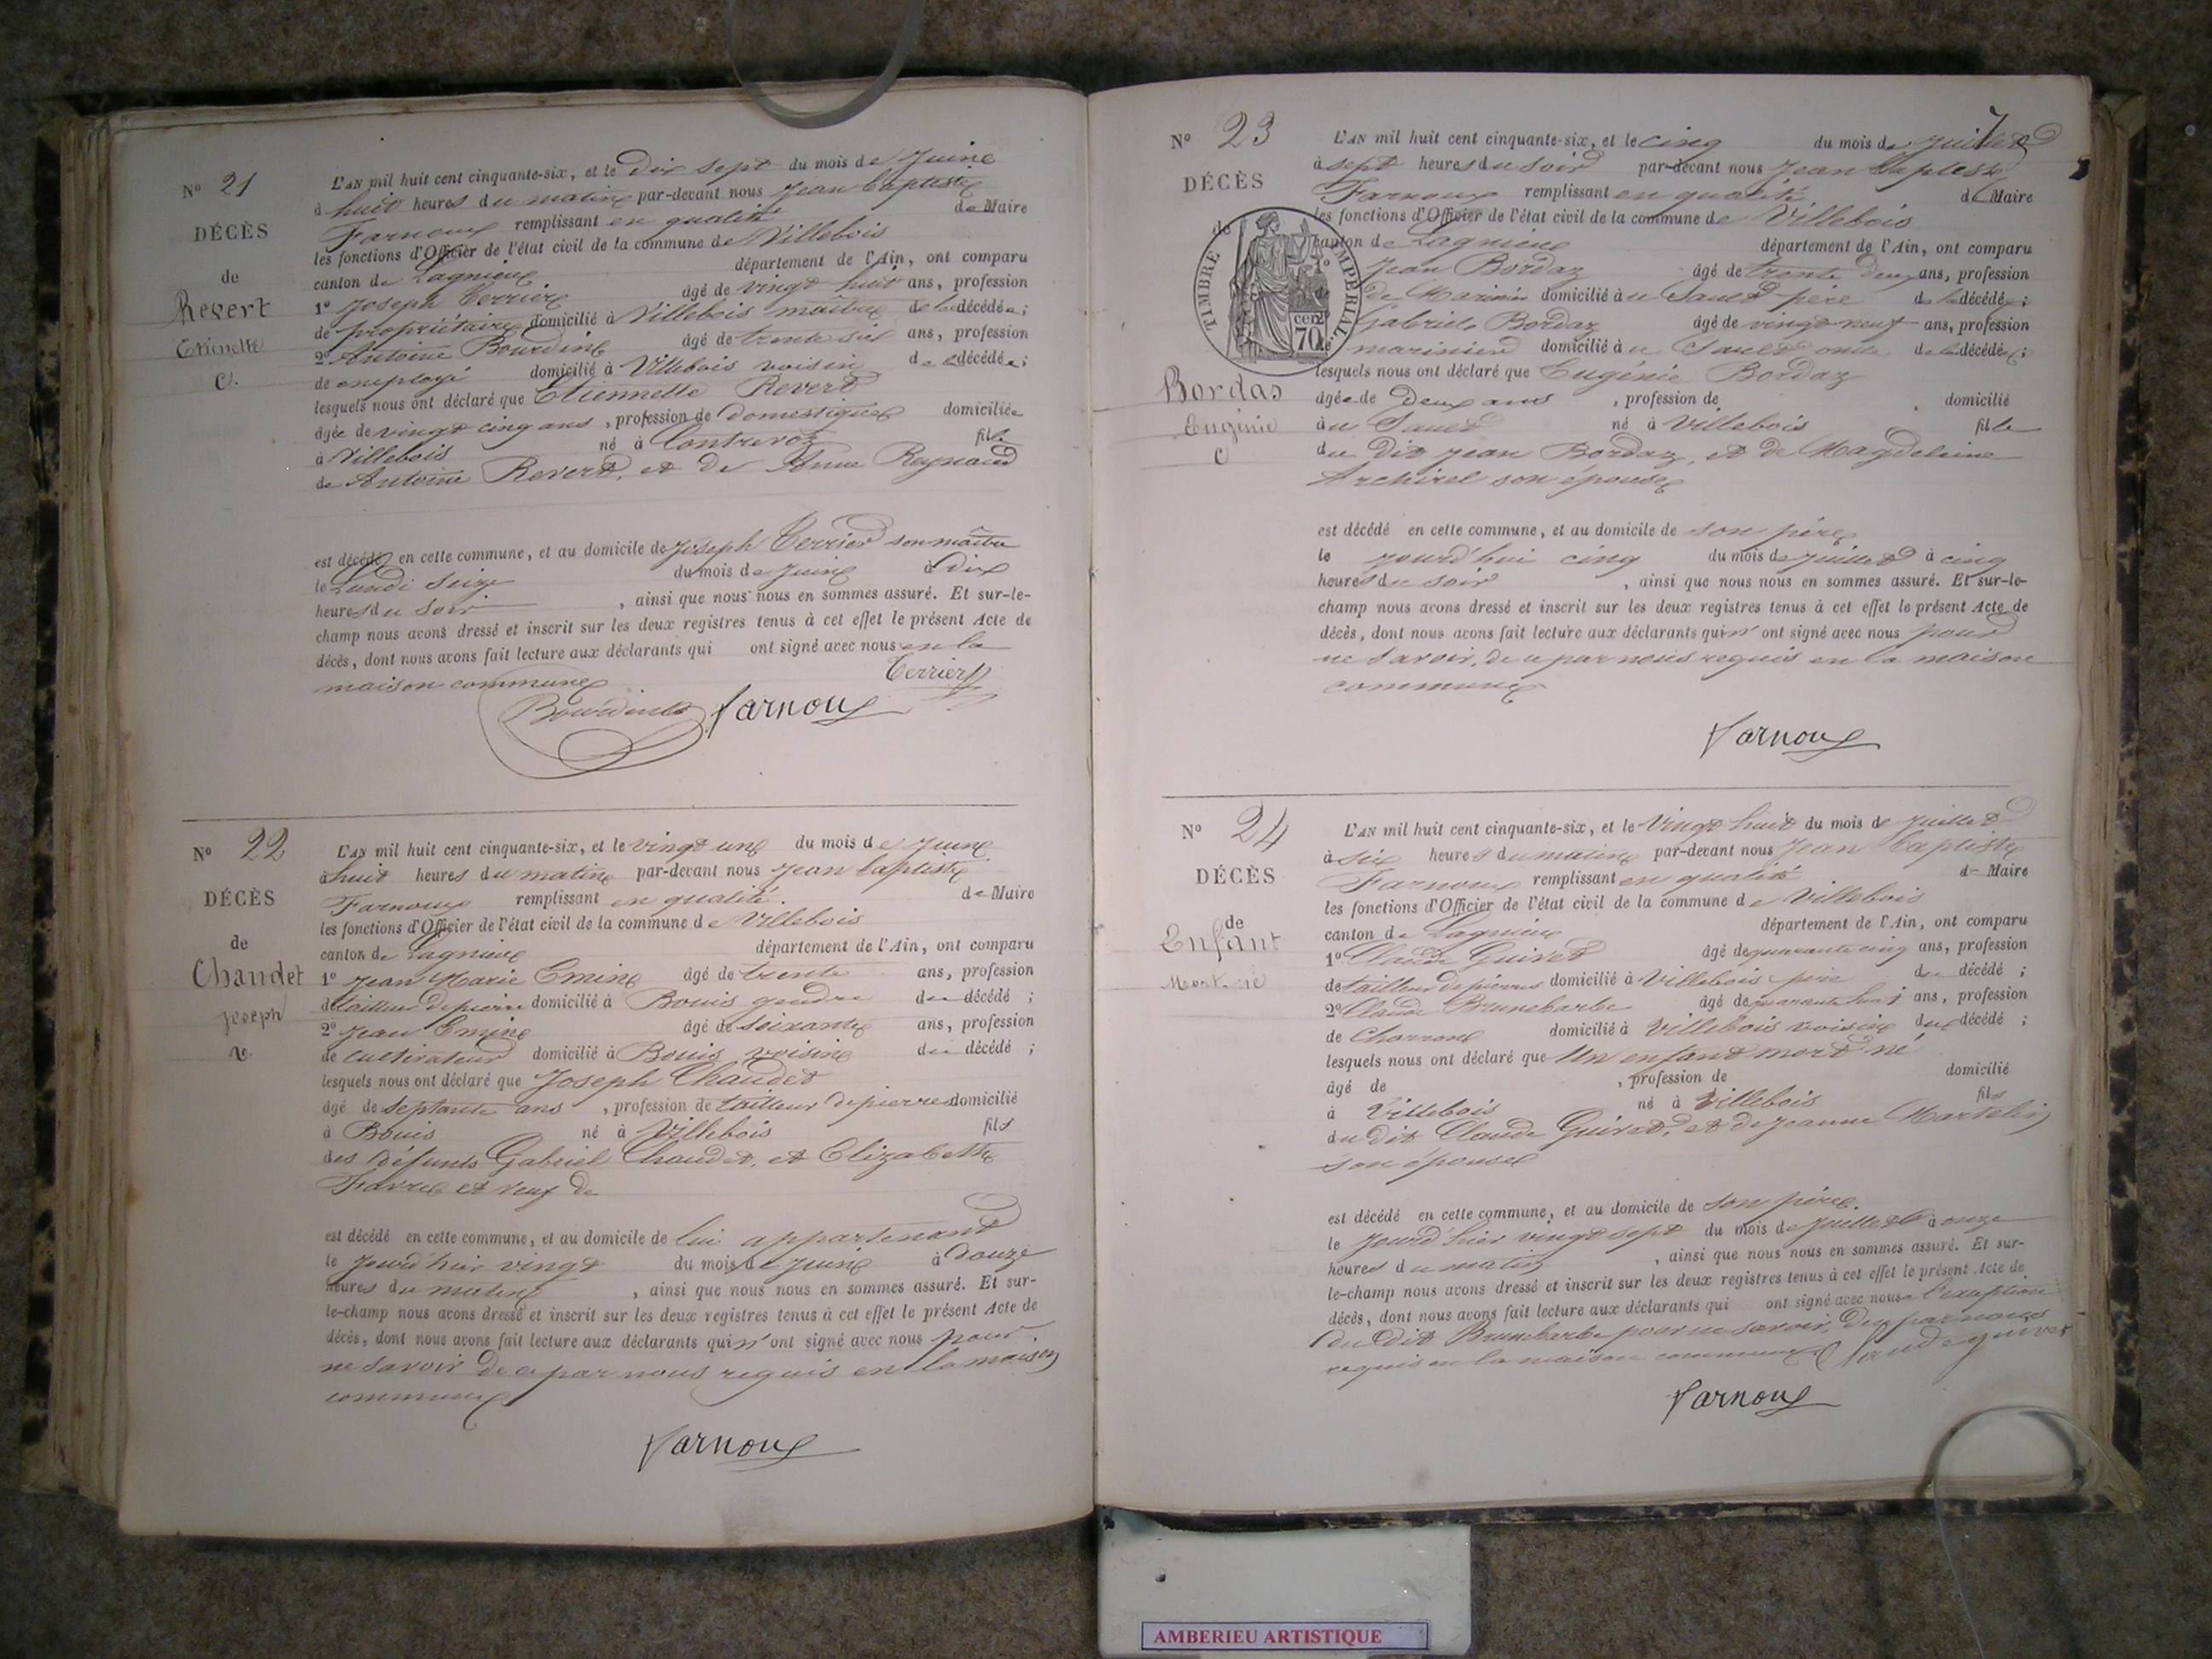 N° 21
DÉCÈS
de
Revert
Etiennette
C.
L'AN mil huit cent cinquante-six, et le Dix sept du mois de Juin
à huit heures du matin par-devant nous Jean Baptiste
Farnoux remplissant en qualité de Maire
les fonctions d'Officier de l'état civil de la commune de Villebois
canton de Lagnieux département de l'Ain, ont comparu
1° Joseph Terrier âgé de vingt huit ans, profession
de propriétaire domicilié à Villebois maître de la décédée;
2° Antoine Bourdin âgé de trente six ans, profession
de employé domicilié à Villebois voisin de la décédée;
lesquels nous ont déclaré que Etiennette Revert
âgée de vingt cinq ans, profession de Domestique domiciliée
à Villebois né à Contrevoz fille
de Antoine Revert, et de Anne Reynaud
est décédée en cette commune, et au domicile de Joseph Terrier son maître
le Lundi seize du mois de Juin à Dix
heures du soir, ainsi que nous nous en sommes assuré. Et sur-le-
champ nous avons dressé et inscrit sur les deux registres tenus à cet effet le présent Acte de
décès, dont nous avons fait lecture aux déclarants qui ont signé avec nous en la
maison commune
Terrier
Bourdin Farnoux
N° 22
DÉCÈS
de
Chaudet
Joseph
v.
L'AN mil huit cent cinquante-six, et le vingt un du mois de Juin
à huit heures du matin par-devant nous Jean Baptiste
Farnoux remplissant en qualité de Maire
les fonctions d'Officier de l'état civil de la commune de Villebois
canton de Lagnieux département de l'Ain, ont comparu
1° Jean Marie Emin âgé de trente ans, profession
de tailleur de pierre domicilié à Bouis gendre du décédé;
2° Jean Emin âgé de soixante ans, profession
de cultivateur domicilié à Bouis voisin du décédé;
lesquels nous ont déclaré que Joseph Chaudet
âgé de septante ans, profession de tailleur de pierres domicilié
à Bouis né à Villebois fils
des défunts Gabriel Chaudet, et Elizabeth
Favre et veuf de
est décédé en cette commune, et au domicile de lui appartenant
le Jourd'hier vingt du mois de Juin à Douze
heures du matin, ainsi que nous nous en sommes assuré. Et sur-
le-champ nous avons dressé et inscrit sur les deux registres tenus à cet effet le présent Acte de
décès, dont nous avons fait lecture aux déclarants qui n'ont signé avec nous pour
ne savoir de ce par nous requis en la maison
commune
Farnoux
7
N° 23
DÉCÈS
de
TIMBRE IMPÉRIAL
70 cen
Bordas
Eugénie
C
L'AN mil huit cent cinquante-six, et le cinq du mois de Juillet
à sept heures du soir par-devant nous Jean Baptiste
Farnoux remplissant en qualité de Maire
les fonctions d'Officier de l'état civil de la commune de Villebois
canton de Lagnieux département de l'Ain, ont comparu
1° Jean Bordaz âgé de trente deux ans, profession
de Marinier domicilié à u Sault père de la décédée;
Gabriel Bordaz âgé de vingt neuf ans, profession
marinier domicilié à u Sault oncle de la décédée;
lesquels nous ont déclaré que Eugénie Bordaz
âgée de Deux ans, profession de domicilié
à u Sault né à Villebois fille
du Dit Jean Bordaz, et de Magdeleine
Archirel son épouse
est décédé en cette commune, et au domicile de son père
le jourd'hui cinq du mois de Juillet à cinq
heures du soir, ainsi que nous nous en sommes assuré. Et sur-le-
champ nous avons dressé et inscrit sur les deux registres tenus à cet effet le présent Acte de
décès, dont nous avons fait lecture aux déclarants qui n'ont signé avec nous pour
ne savoir, de ce par nous requis en la maison
commune
Farnoux
N° 24
DÉCÈS
de
Enfant
Mort né
L'AN mil huit cent cinquante-six, et le Vingt huit du mois de Juillet
à six heures du matin par-devant nous Jean Baptiste
Farnoux remplissant en qualité de Maire
les fonctions d'Officier de l'état civil de la commune de Villebois
canton de Lagnieux département de l'Ain, ont comparu
1° Claude Guivet âgé de quarante cinq ans, profession
de tailleur de pierres domicilié à Villebois père du décédé;
2° Claude Brunebarbe âgé de quarante huit ans, profession
de Charron domicilié à Villebois voisin du décédé;
lesquels nous ont déclaré que Un enfant mort né
âgé de, profession de domicilié
à Villebois né à Villebois fils
du dit Claude Guivet, et de Jeanne Martelin
son épouse
est décédé en cette commune, et au domicile de son père
le Jourd'hier vingt sept du mois de Juillet à onze
heures du matin, ainsi que nous nous en sommes assuré. Et sur-
le-champ nous avons dressé et inscrit sur les deux registres tenus à cet effet le présent Acte de
décès, dont nous avons fait lecture aux déclarants qui ont signé avec nous à l'exception
du Dit Brunebarbe pour ne savoir, de ce par nous
requis en la maison commune Claude guivet
Farnoux
AMBERIEU ARTISTIQUE